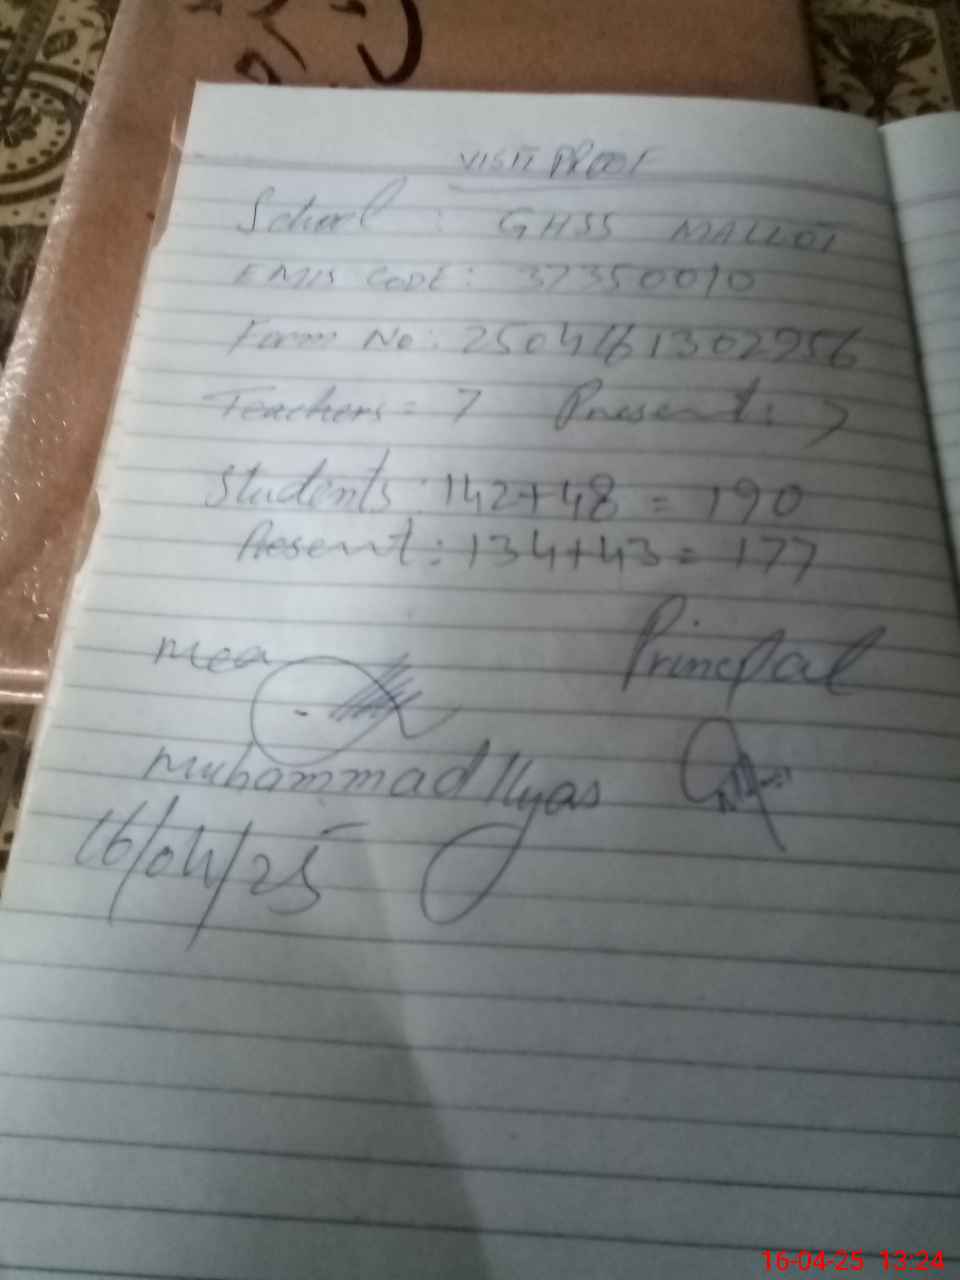 VISIT PROOF
School : GHSS MALLOT
EMIS Code : 37350010
Form No : 2504161302956
Teachers = 7 Present : 7
Students : 142+48 = 190
Present : 134+43 = 177
Mea Principal
Muhammad Ilyas
16/04/25
16-04-25 13:24